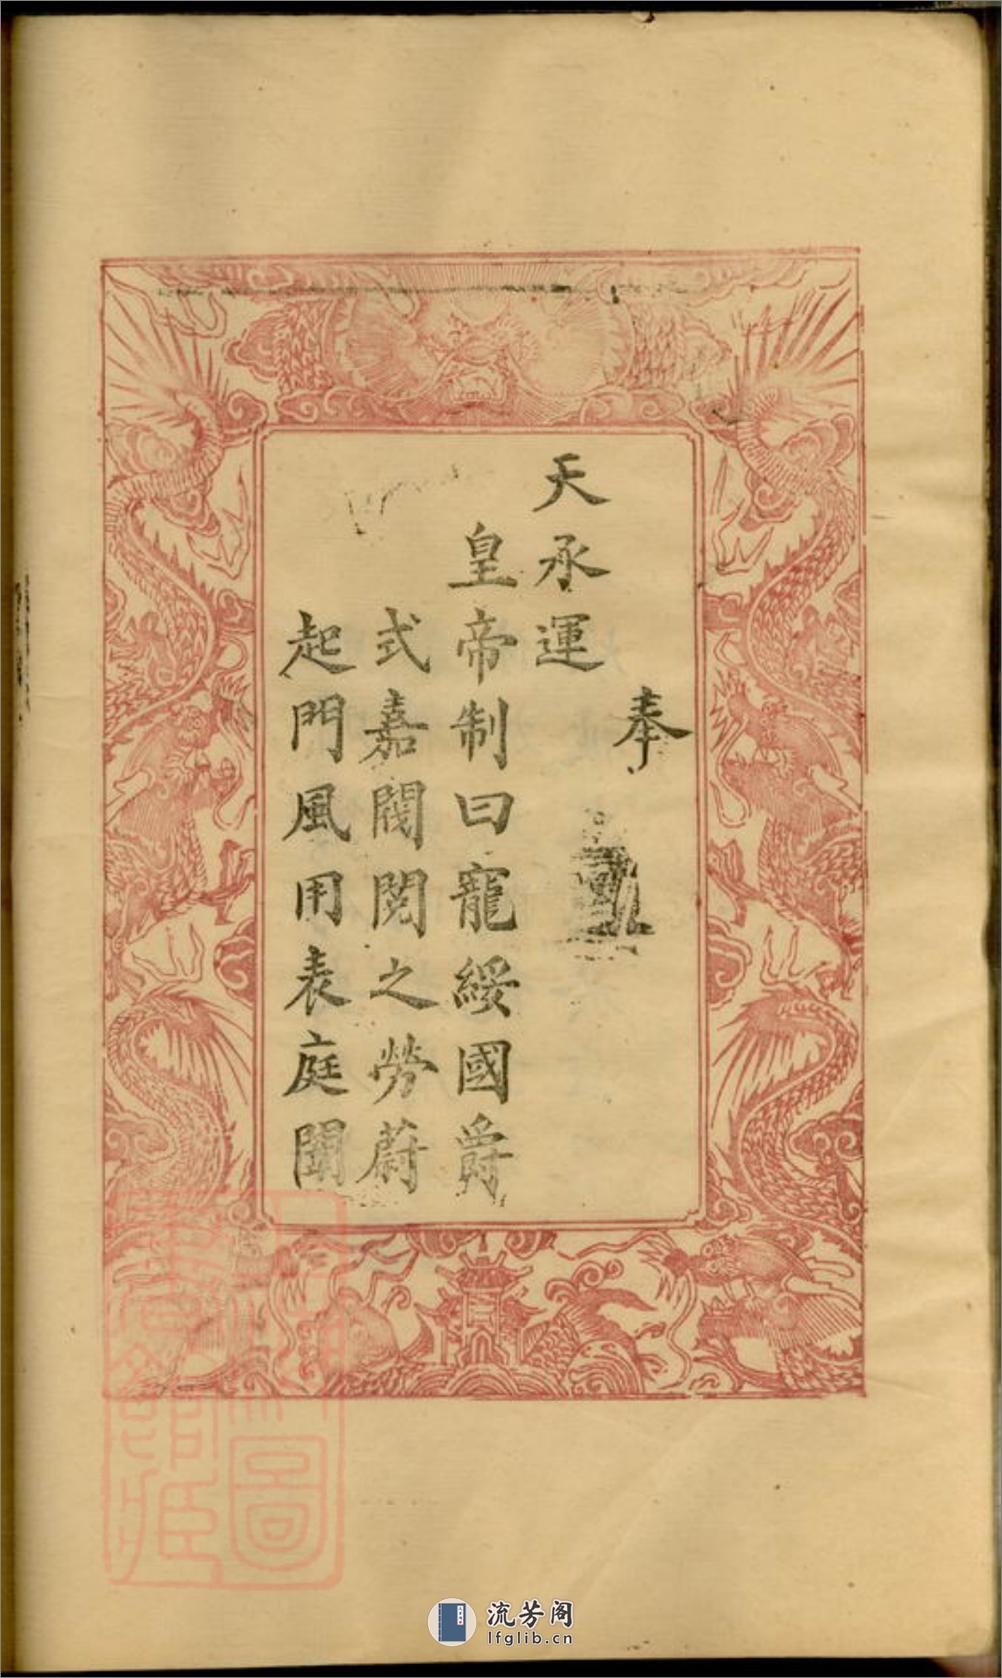 奉
天承運
皇帝制曰寵綏國爵
式嘉閥閱之勞蔚
起門風用表庭闈
圖
書館藏
流芳阁
lfglib.cn